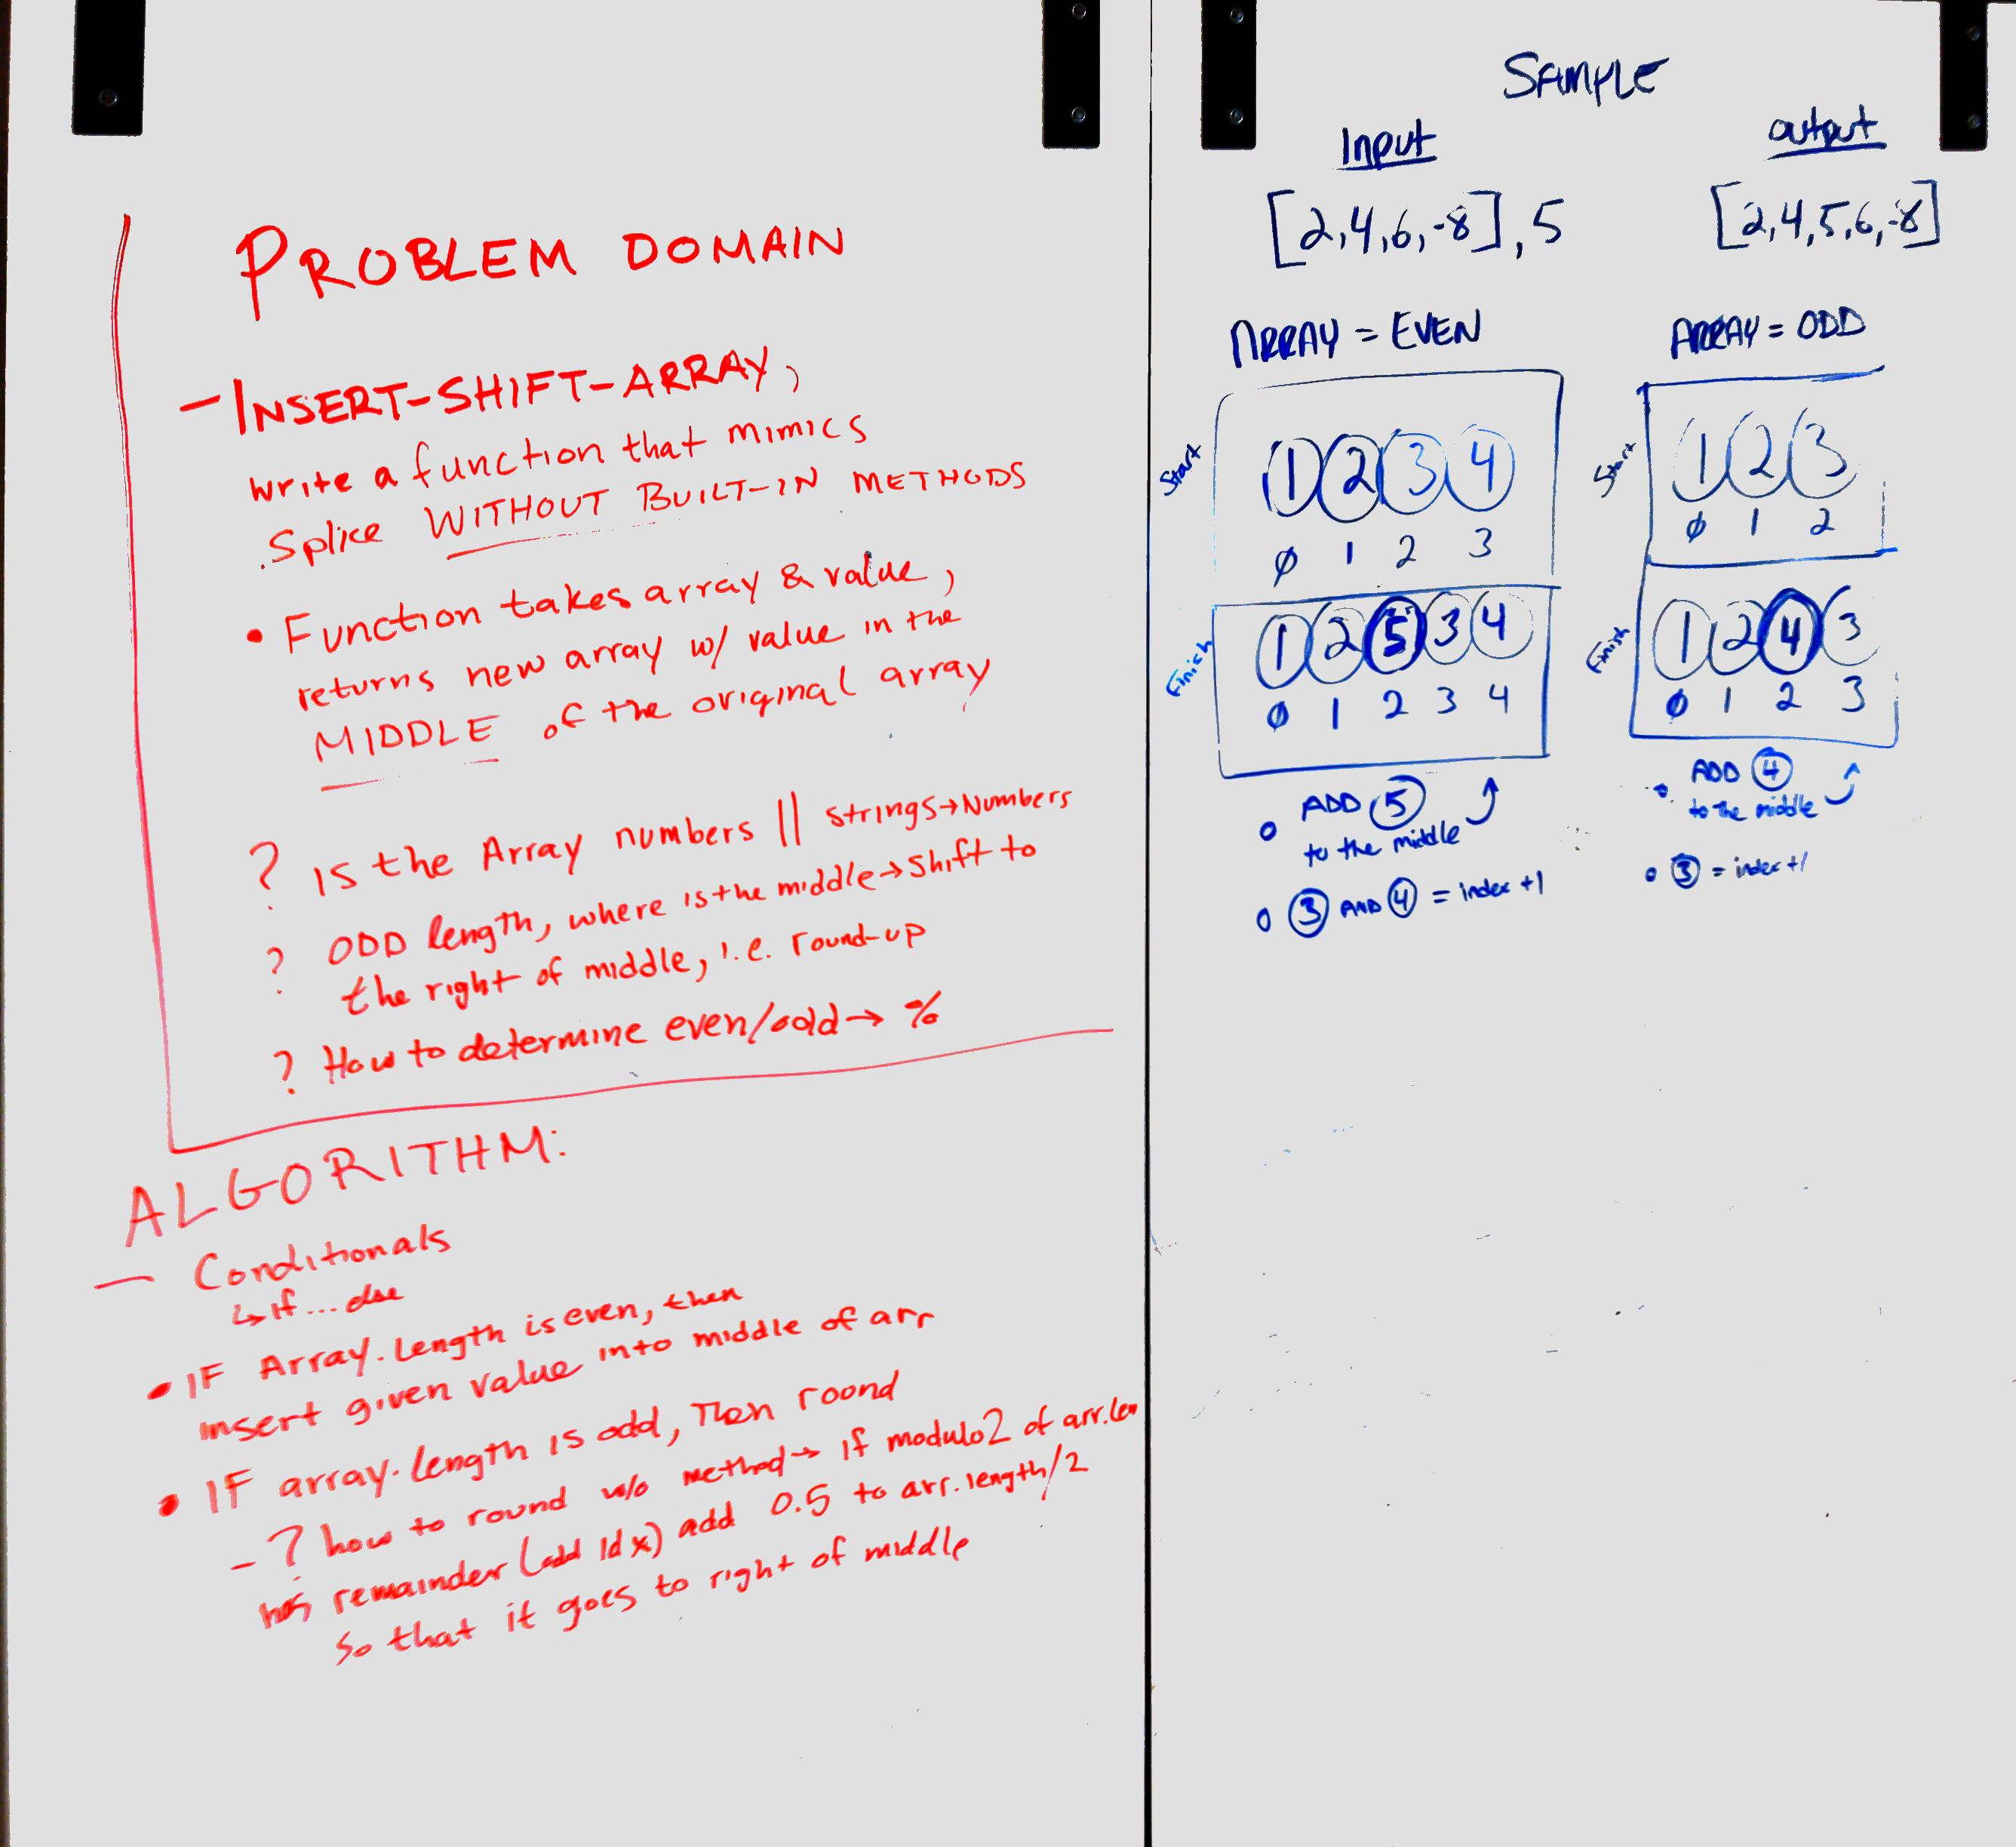 PROBLEM DOMAIN
- INSERT-SHIFT-ARRAY,
write a function that mimics
.Splice WITHOUT BUILT-IN METHODS
• Function takes array & value,
returns new array w/ value in the
MIDDLE of the original array
? Is the Array numbers || strings → Numbers
? ODD length, where is the middle → Shift to
the right of middle, i.e. round-up
? How to determine even/odd → %
ALGORITHM:
- Conditionals
↳ If ... else
• IF Array.Length is even, then
insert given value into middle of arr
• IF array.length is odd, Then roond
- ? how to round w/o method → if modulo 2 of arr.len
has remainder (odd idx) add 0.5 to arr.length/2
so that it goes to right of middle
SAMPLE
Input output
[2,4,6,-8], 5 [2,4,5,6,-8]
ARRAY = EVEN ARRAY = ODD
Start 1 2 3 4 Start 1 2 3
0 1 2 3 0 1 2
Finish 1 2 5 3 4 Finish 1 2 4 3
0 1 2 3 4 0 1 2 3
ADD 5 ADD 4
to the middle to the middle
3 AND 4 = index +1 3 = index +1